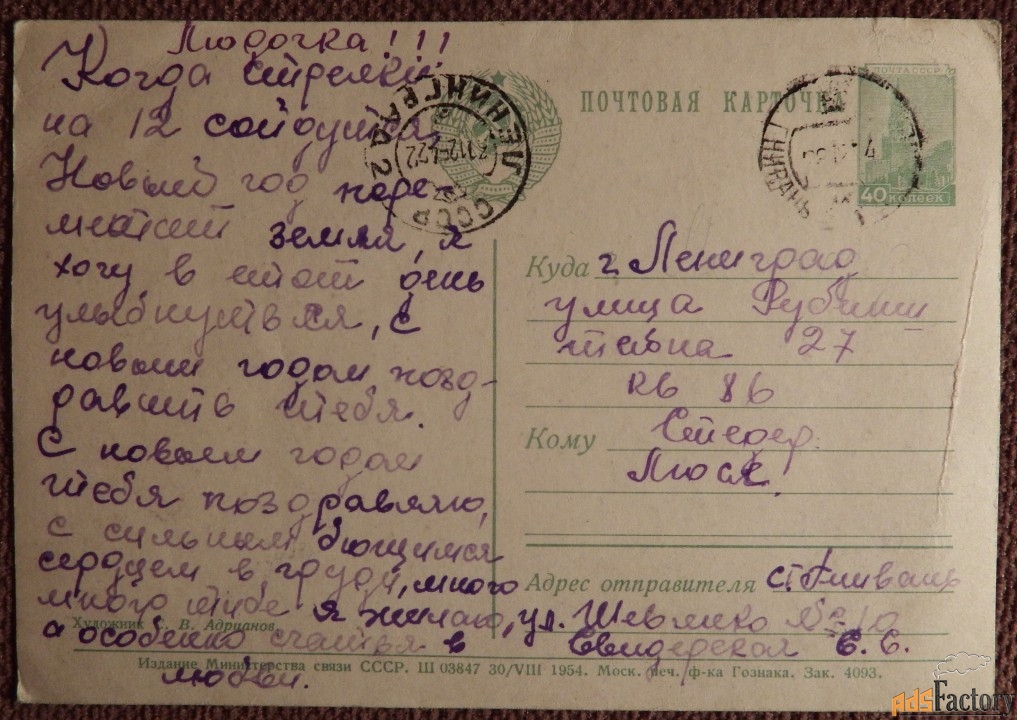 Людочка!!!
Когда стрелки
на 12 сойдутся,
Новый год
земля, я
хочу в этот день
улыбнуться, с
новым годом позд-
равить тебя.
С новым годом
тебя поздравляю,
с сильным бющимся
сердцем в груди, много
много тебе я желаю,
а особенно счастья в
любви.
ПОЧТОВАЯ КАРТОЧКА
ПОЧТА СССР
40 копеек
ЛЕНИНГРАД 2
СССР
Куда г. Ленинград
улица Рубин
штейна 27
кв 86
Кому
Люся.
Адрес отправителя
ул.
Е. С.
Художник В. Адрианов.
Издание Министерства связи СССР. Ш 03847 30/VIII 1954. Моск. печ. ф-ка Гознака. Зак. 4093.
AdsFactory